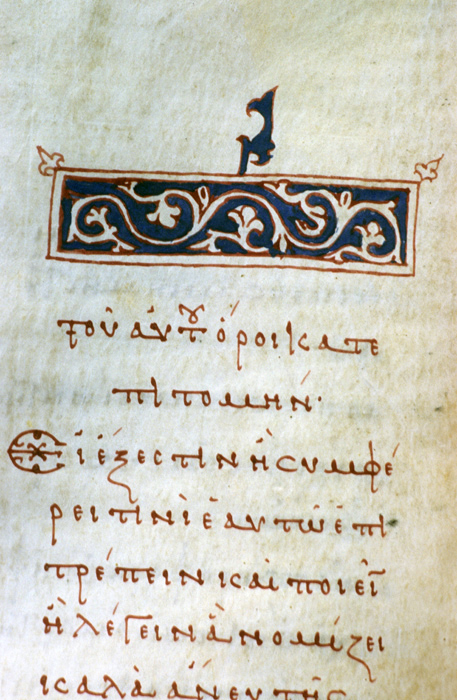 τοῦ ἀυτοῦ ὅροι κατε
πιτομήν·
Εἰ ἔξεστιν ἢ συμφέ
ρει τινὶ ἑαυτῶ ἐπι
τρέπειν καὶ ποιεῖ
ἢ λέγειν ἃ νομίζει
καλὰ ἄνευ τῆς